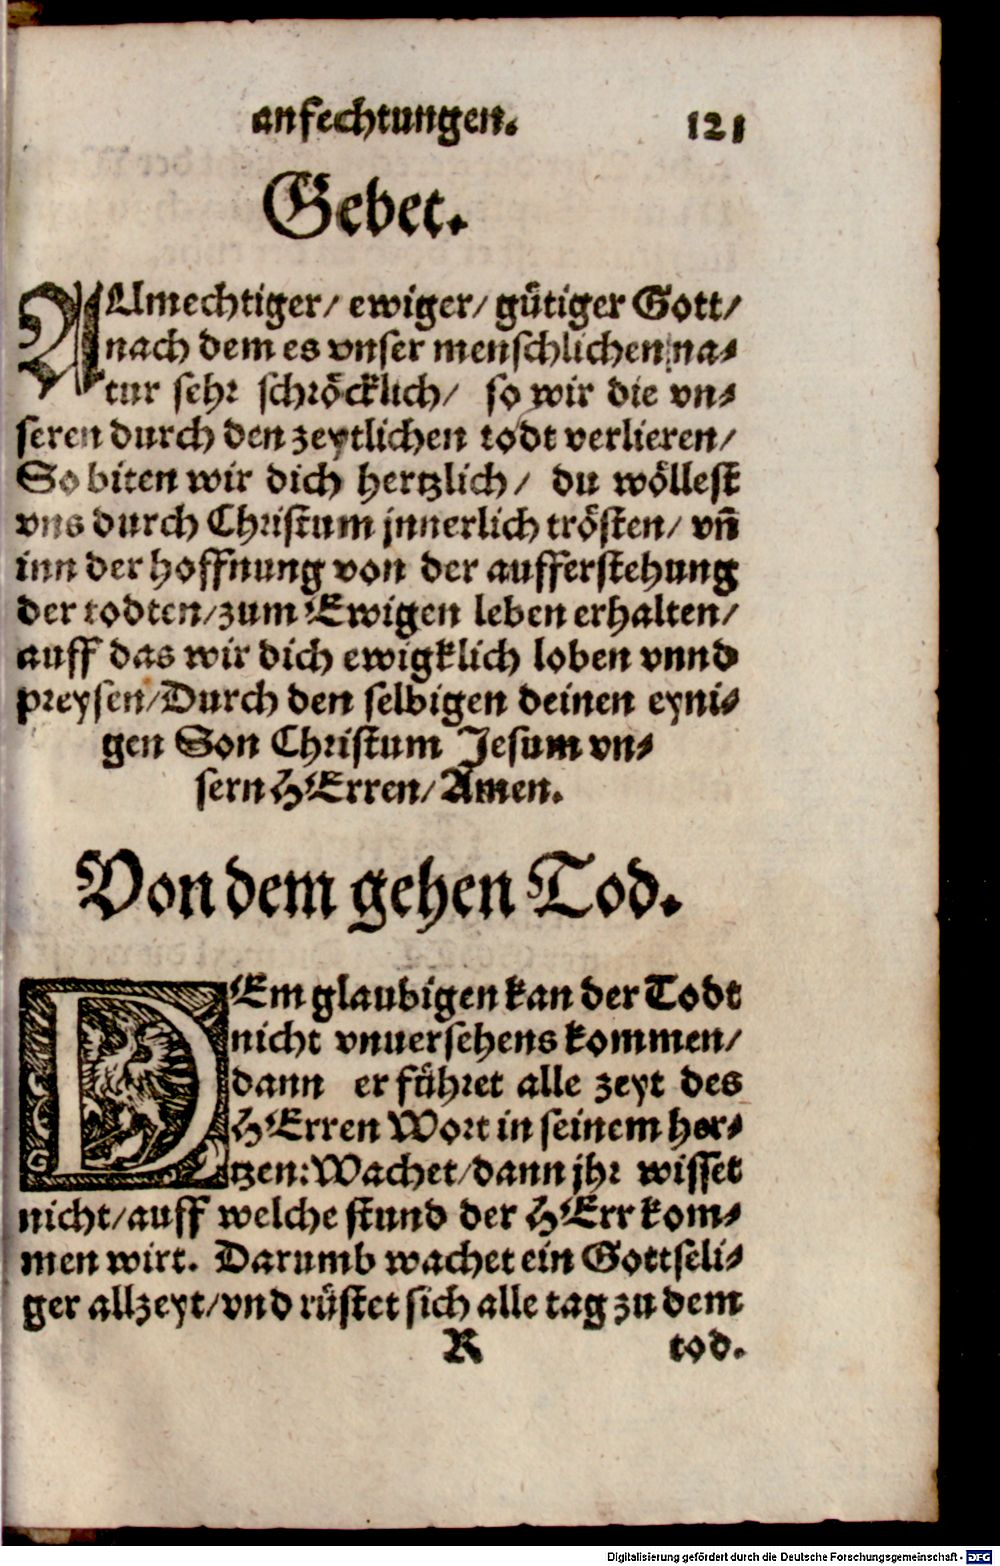 anfechtungen. 121
Gebet.
ALlmechtiger/ ewiger/ gütiger Gott/
nach dem es vnser menschlichen na-
tur sehr schröcklich/ so wir die vn-
seren durch den zeytlichen todt verlieren/
So biten wir dich hertzlich/ du wöllest
vns durch Christum jnnerlich trösten/ vñ
inn der hoffnung von der aufferstehung
der todten/zum Ewigen leben erhalten/
auff das wir dich ewigklich loben vnnd
preysen/Durch den selbigen deinen eyni-
gen Son Christum Jesum vn-
sern HErren/Amen.
Von dem gehen Tod.
DEm glaubigen kan der Todt
nicht vnuersehens kommen/
dann er führet alle zeyt des
HErren Wort in seinem her-
tzen:Wachet/dann jhr wisset
nicht/auff welche stund der HErr kom-
men wirt. Darumb wachet ein Gottseli-
ger allzeyt/vnd rüstet sich alle tag zu dem
R tod.
Digitalisierung gefördert durch die Deutsche Forschungsgemeinschaft - DFG